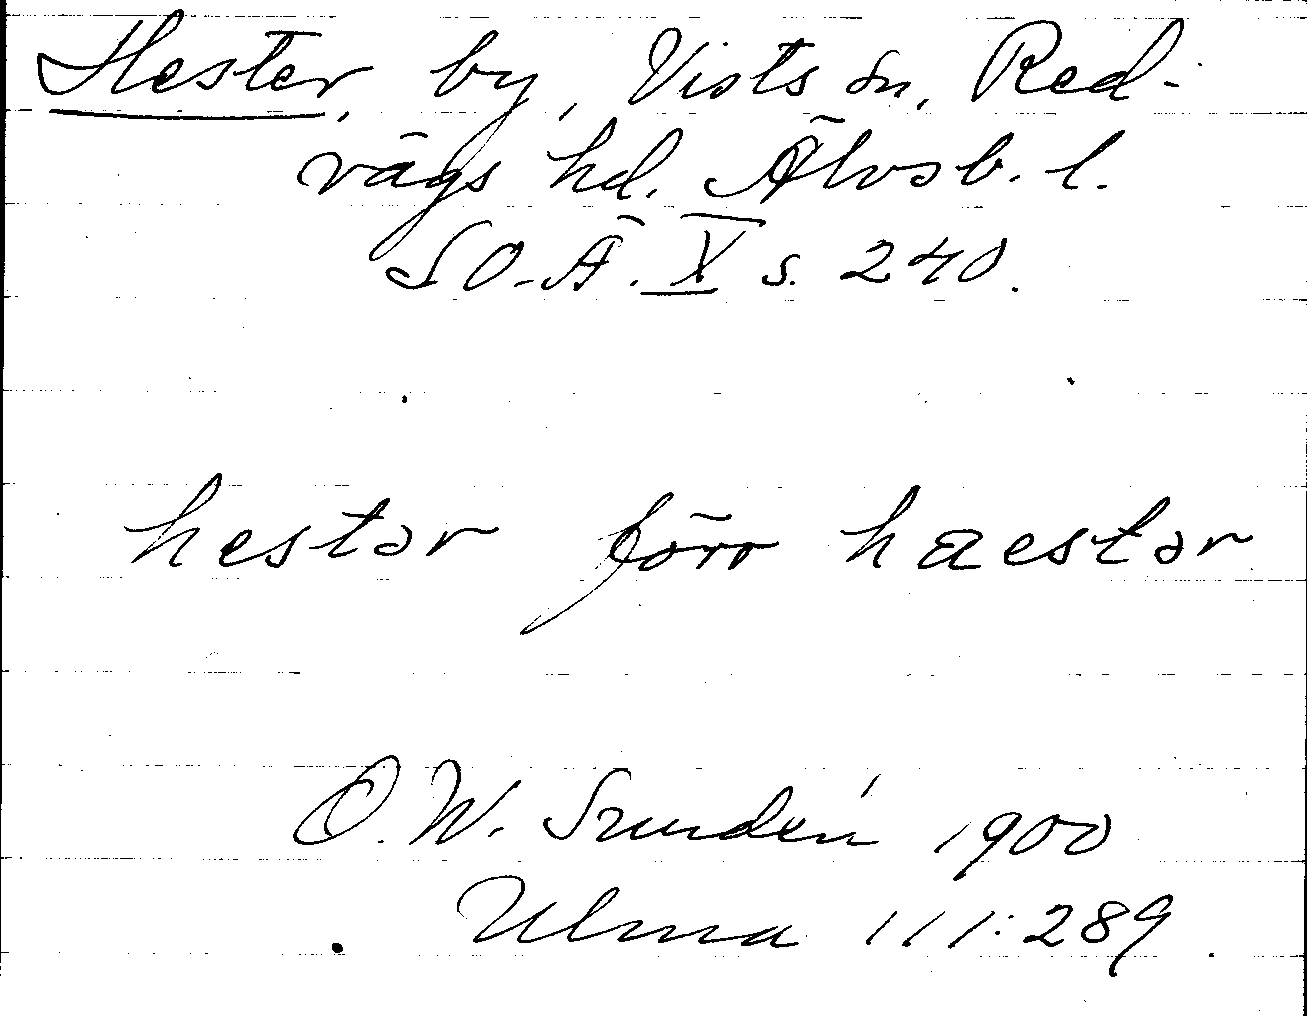 Hester, by, Vists sn, Red-
vägs hd. Älvsb. l.
SO.Ä. X s. 240.
hestər förr haestər
O.W. Sundén 1900
Ulma 111:289.